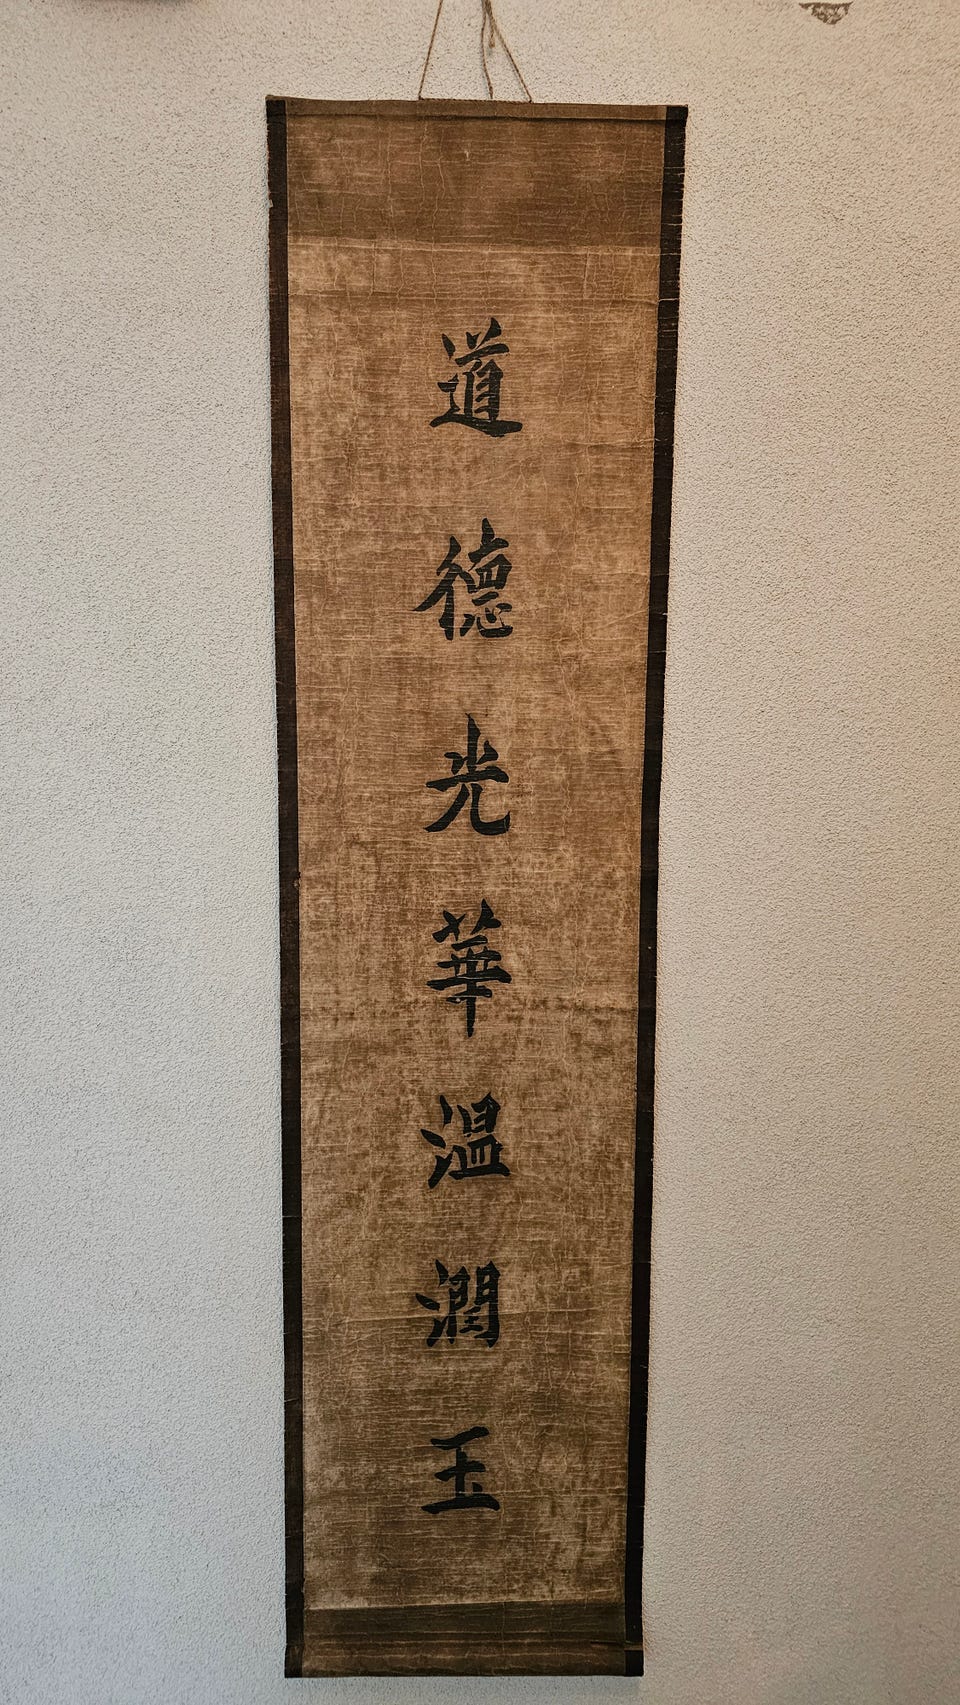 道德光華温潤玉